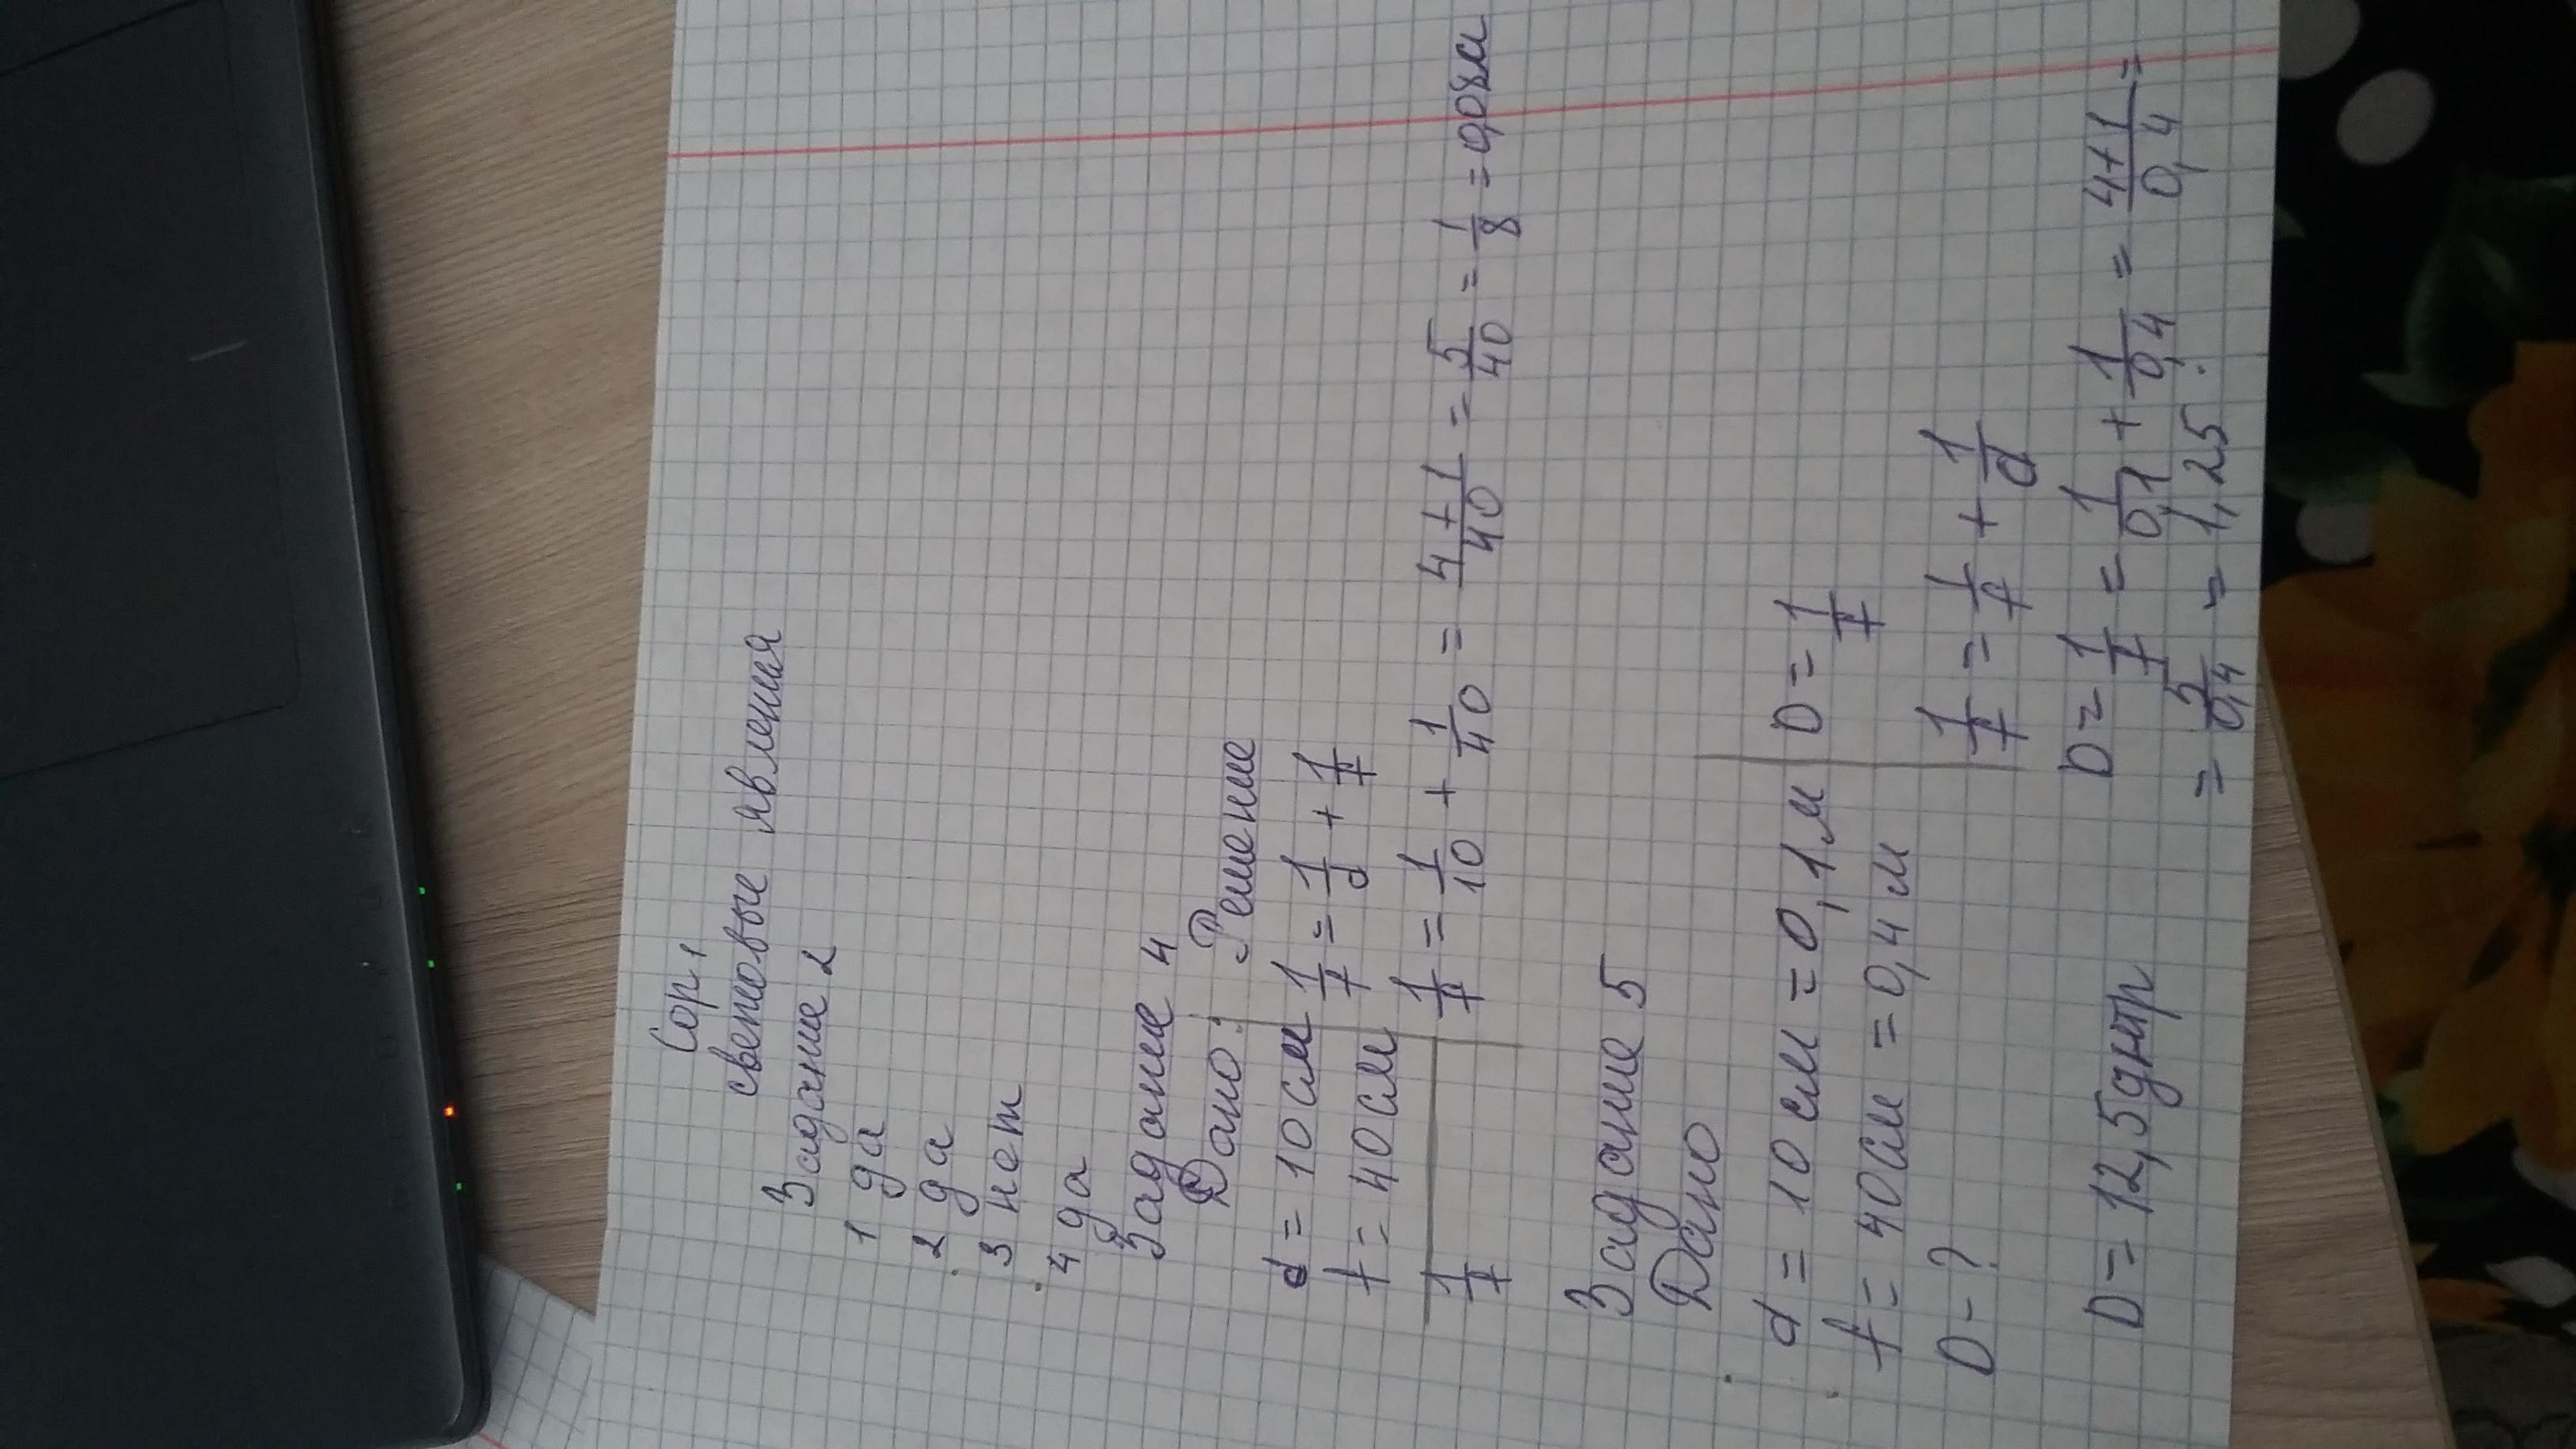 Сор 1
световые явления
Задание 2
1 да
2 да
3 нет
4 да
Задание 4
Дано: Решение
d = 10 см 1/F = 1/d + 1/f
f = 40 см
1/F 1/F = 1/10 + 1/40 = 4+1/40 = 5/40 = 1/8 = 0,08м
Задание 5
Дано
d = 10 см = 0,1 м D = 1/F
f = 40 см = 0,4 м
D - ? 1/F = 1/f + 1/d
D = 1/F = 1/0,1 + 1/0,4 = 4+1/0,4 =
D = 12,5 дптр = 5/0,4 = 1,25